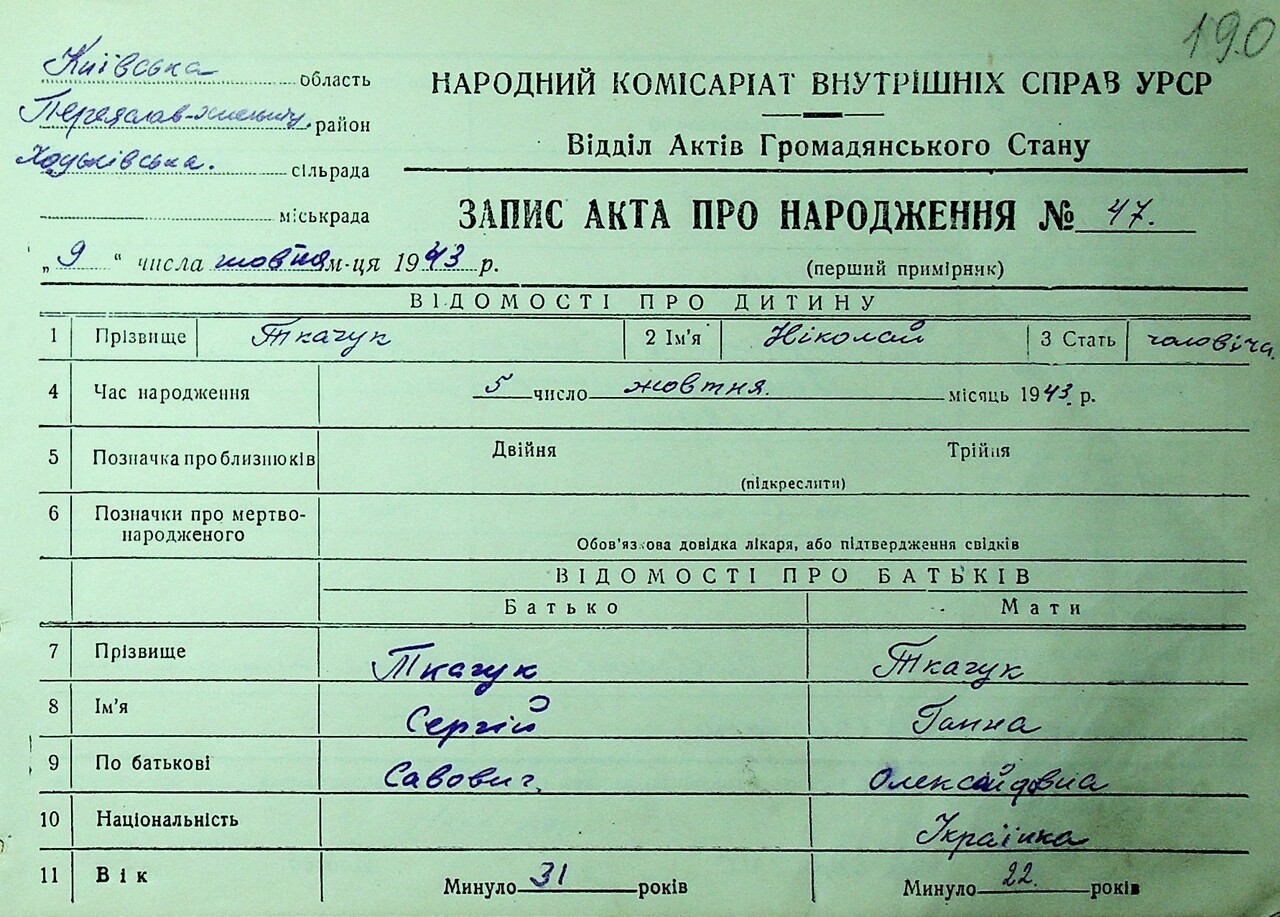 190
Київська область
Переяслав-Хмельниц. район
Хоцьківська. сільрада
міськрада
НАРОДНИЙ КОМІСАРІАТ ВНУТРІШНІХ СПРАВ УРСР
Відділ Актів Громадянського Стану
ЗАПИС АКТА ПРО НАРОДЖЕННЯ № 47.
„9“ числа жовтня м-ця 1943 р.
(перший примірник)
ВІДОМОСТІ ПРО ДИТИНУ
1 Прізвище Ткачук 2 Ім'я Ніколай 3 Стать чоловіча.
4 Час народження 5 число жовтня. місяць 1943. р.
5 Позначка про близнюків Двійня Трійня
(підкреслити)
6 Позначки про мертво-
народженого
Обов'язкова довідка лікаря, або підтвердження свідків
ВІДОМОСТІ ПРО БАТЬКІВ
Батько Мати
7 Прізвище Ткачук Ткачук
8 Ім'я Сергій Ганна
9 По батькові Савович. 
10 Національність Українка
11 Вік Минуло 31 років Минуло 22. років